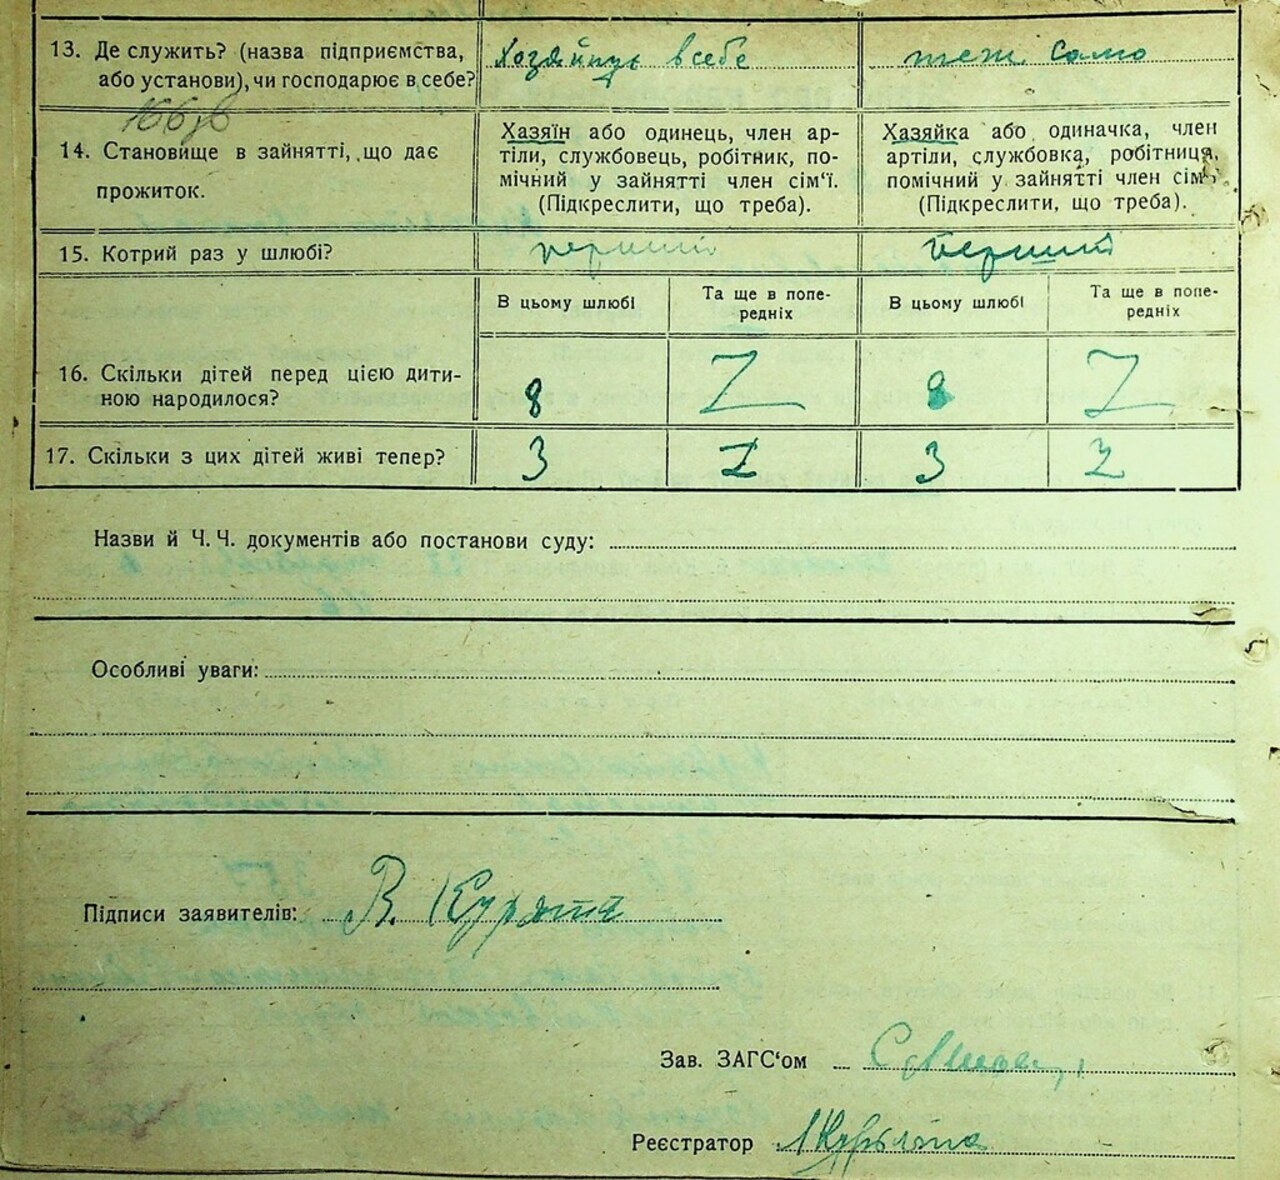 13. Де служить? (назва підприємства, або установи), чи господарює в себе?
Хозяйнує в себе
теж само
14. Становище в зайнятті, що дає прожиток.
Хазяїн або одинець, член ар-
тіли, службовець, робітник, по-
мічний у зайнятті член сім'ї.
(Підкреслити, що треба).
Хазяйка або одиначка, член
артіли, службовка, робітниця,
помічний у зайнятті член сім'ї
(Підкреслити, що треба).
15. Котрий раз у шлюбі?
перший
перший
В цьому шлюбі
Та ще в попе-
редніх
В цьому шлюбі
Та ще в попе-
редніх
16. Скільки дітей перед цією дити-
ною народилося?
8
Z
8
Z
17. Скільки з цих дітей живі тепер?
3
Z
3
Z
Назви й Ч. Ч. документів або постанови суду:
Особливі уваги:
Підписи заявителів: В. Курята
Зав. ЗАГС'ом
Реєстратор